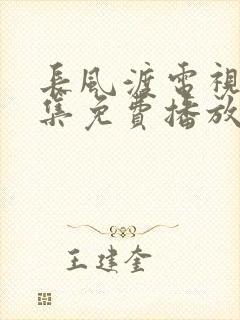 長風渡電視
集免費播放
王建奎